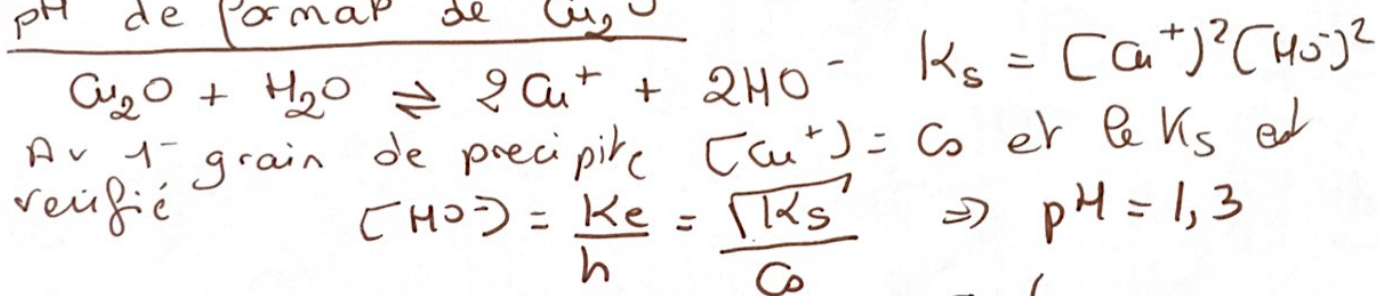 pH de format° de Cu₂O
Cu₂O + H₂O ⇌ 2Cu⁺ + 2HO⁻ Ks = [Cu⁺]²[HO⁻]²
Au 1ᵉ grain de precipite [Cu⁺] = C₀ et le Ks est
verifié [HO⁻] = Ke/h = √Ks/C₀ ⇒ pH = 1,3